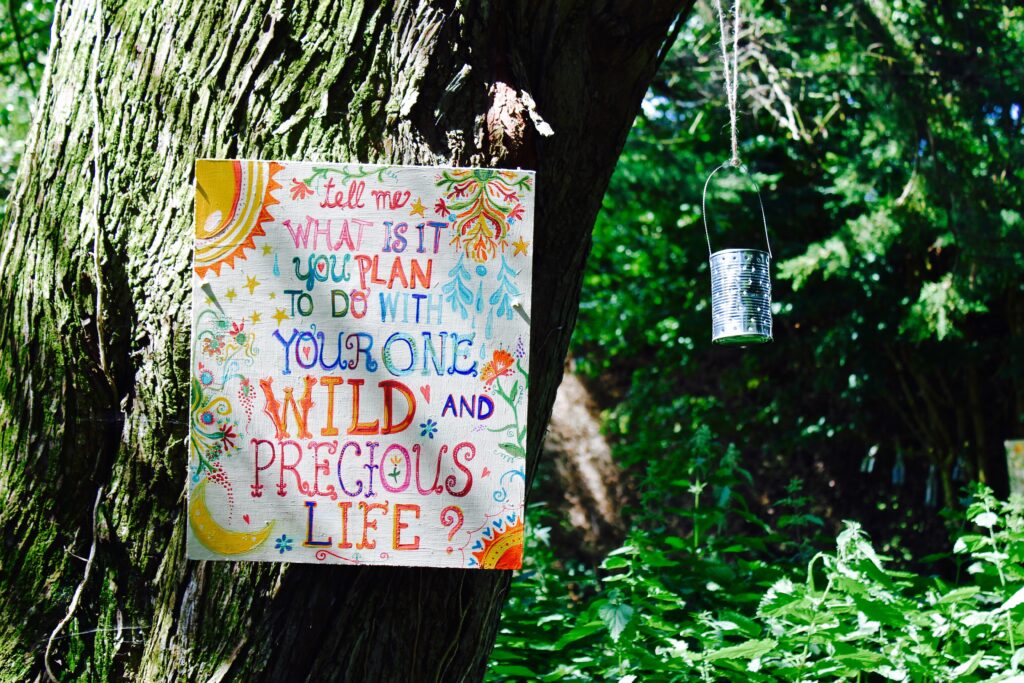 tell me
WHAT IS IT
YOU PLAN
TO DO WITH
YOUR ONE
WILD AND
PRECIOUS
LIFE?